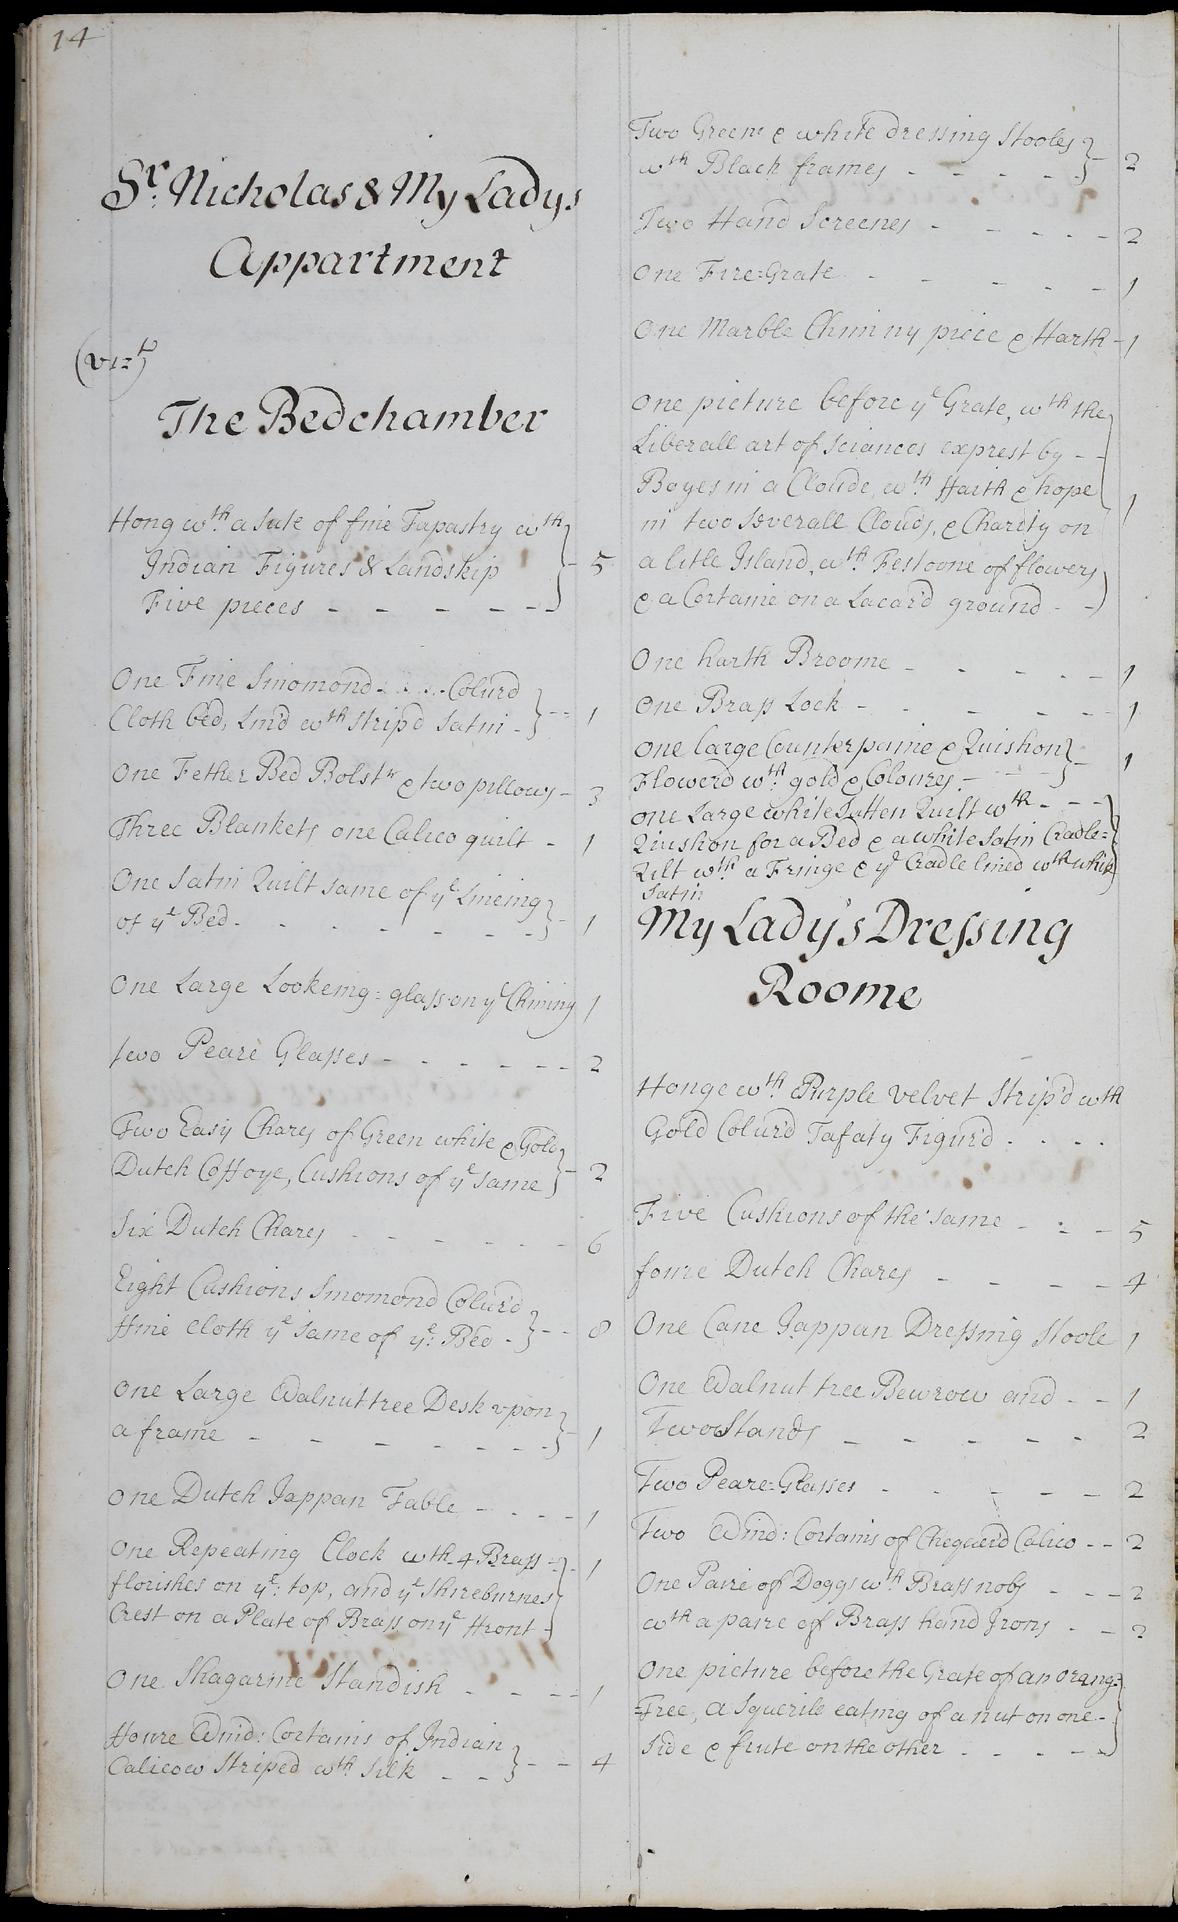 14
Sr. Nicholas & My Ladys
Appartment
(vizt)
The Bedchamber
Hong wth. a Sute of fine Tapastry wth
Indian Figures & Landskip
Five pieces - - - - - - 5
One Fine Sinomond - . . . - Colurd
Cloth bed, Lin'd wth Strip'd Satin - - - 1
One Fether Bed Bolstr & two pillows - 3
Three Blankets one Calico quilt - 1
One Satin Quilt same of ye Lineing
of ye Bed - - - - - - - - 1
One Large Lookeing=glass on ye Chimny 1
two Peare Glasses - - - - - - 2
Two Easy Chares of Green white & Gold
Dutch Coffoye, Cushions of ye same - 2
Six Dutch Chares - - - - - - 6
Eight Cushions Sinomond Colur'd
ffine cloth ye same of ye: Bed - - - 8
One Large Walnuttree Desk vpon
a frame - - - - - - - - 1
One Dutch Jappan Table - - - - 1
One Repeating Clock wth 4 Brass - 1
florishes on ye: top, and ye Shireburnes
Crest on a Plate of Brass on ye ffront -
One Shagarine Standish - - - - - 1
ffoure Wind: Cortains of Indian
Calicow Striped wth. Silk - - - - 4
Two Greene & white dressing Stooles
wth Black frames - - - - - - 2
Two Hand Screenes - - - - - - 2
One Fire=Grate - - - - - - 1
One Marble Chimny piece & Harth - 1
One picture before ye Grate, wth the
Liberall art of Sciances exprest by - -
Boyes in a Cloude, wth. ffaith & hope 1
in two Severall Clouds, & Charity on
a litle Island, wth. Festoone of flowers
& a Cortaine on a Lacar'd ground - -
One harth Broome - - - - - 1
One Brass Lock - - - - - - 1
One large Counterpaine & Quishon
Flowerd wth. gold & Coloures - - - - 1
One Large white Satten Quilt wth - - -
Quishon for a Bed & a white Satin Cradle=
Qilt wth a Fringe & ye Cradle lined wth white
Satin
My Lady's Dressing
Roome
Honge wth. Purple velvet Strip'd wth
Gold Colur'd Tafaty Figur'd . . . .
Five Cushions of the same - - - 5
foure Dutch Chares - - - - - 4
One Cane Jappan Dressing Stoole 1
One Walnut tree Bewrow and - - 1
Two Stands - - - - - 2
Two Peare=Glasses - - - - - 2
Two Wind: Cortains of Chequer'd Calico - - 2
One Paire of Doggs wth Brass nobs - - - 2
wth a paire of Brass hand Irons - - 2
One picture before the Grate of an orang=
=Tree, a Squerile eating of a nut on one -
side & frute on the other - - - - -